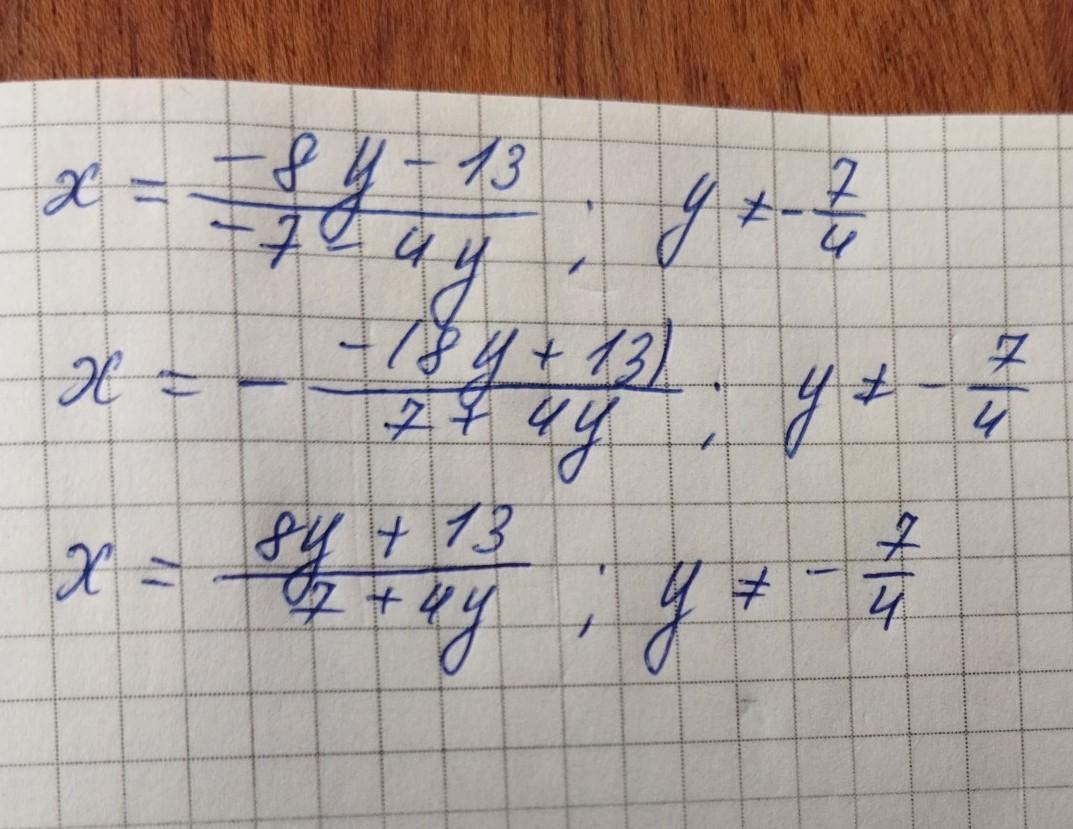 x = \frac{-8y - 13}{-7 - 4y} ; y ≠ -\frac{7}{4}
x = -\frac{-(8y + 13)}{7 + 4y} ; y ≠ -\frac{7}{4}
x = \frac{8y + 13}{7 + 4y} ; y ≠ -\frac{7}{4}